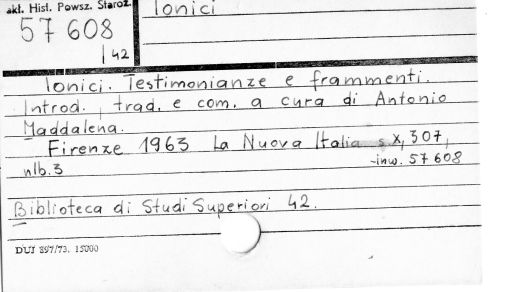 akł. Hist. Powsz. Staroż.
Ionici
57 608
42
Ionici. Testimonianze e frammenti.
Introd., trad. e com. a cura di Antonio
Maddalena.
Firenze 1963 La Nuova Italia s. X, 307,
nlb. 3
-inw. 57 608
Biblioteca di Studi Superiori 42.
DUJ 897/73. 15000